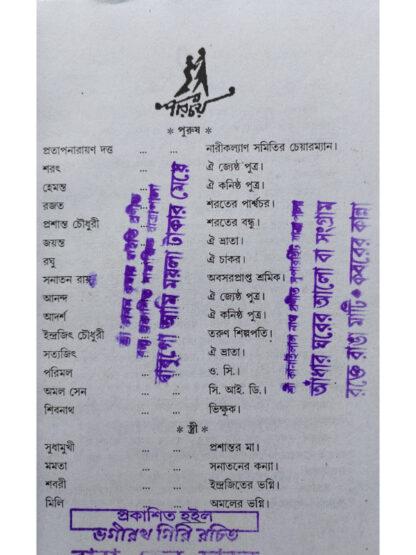 পরিচয়
* পুরুষ *
প্রতাপনারায়ণ দত্ত ... ... নারীকল্যাণ সমিতির চেয়ারম্যান।
শরৎ ... ... ঐ জ্যেষ্ঠ পুত্র।
হেমন্ত ... ঐ কনিষ্ঠ পুত্র।
রজত ... শরতের পার্শ্বচর।
প্রশান্ত চৌধুরী ... শরতের বন্ধু।
জয়ন্ত ... ঐ ভ্রাতা।
রঘু ... ঐ চাকর।
সনাতন রায় ... অবসরপ্রাপ্ত শ্রমিক।
আনন্দ ... ঐ জ্যেষ্ঠ পুত্র।
আদর্শ ... ঐ কনিষ্ঠ পুত্র।
ইন্দ্রজিৎ চৌধুরী ... তরুণ শিল্পপতি।
সত্যজিৎ ... ঐ ভ্রাতা।
পরিমল ... ও. সি.।
অমল সেন ... ... সি. আই. ডি.।
শিবনাথ ... ... ভিক্ষুক।
* স্ত্রী *
সুধামুখী ... ... প্রশান্তর মা।
মমতা ... ... সনাতনের কন্যা।
শবরী ... ... ইন্দ্রজিতের ভগ্নি।
মিলি ... ... অমলের ভগ্নি।
বাবুগো আমি ময়লা টাকার মেয়ে
আঁধার ঘরের আলো বা সংগ্রাম
রক্তে রাঙা মাটি • কবরের কান্না
প্রকাশিত হইল
ভগীরথ গিরি রচিত